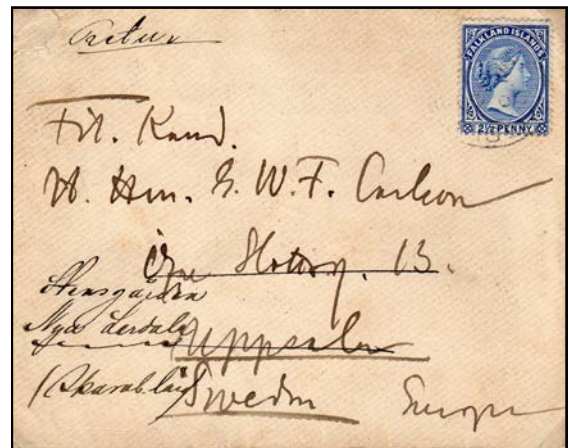 Retur
FALKLAND ISLANDS
2½ PENNY
Fil. Kand.
H. Herr. G. W. F. Carlson
Slottsg. 13.
Stensgården
Nya Lerdala
Uppsala
(Skarablä
Sweden Europe